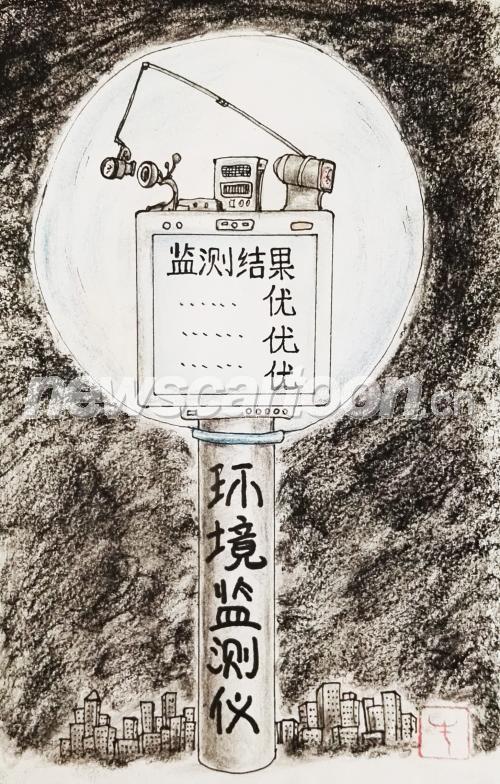 监测结果
…… 优
…… 优
…… 优
newscartoon.cn
环境监测仪